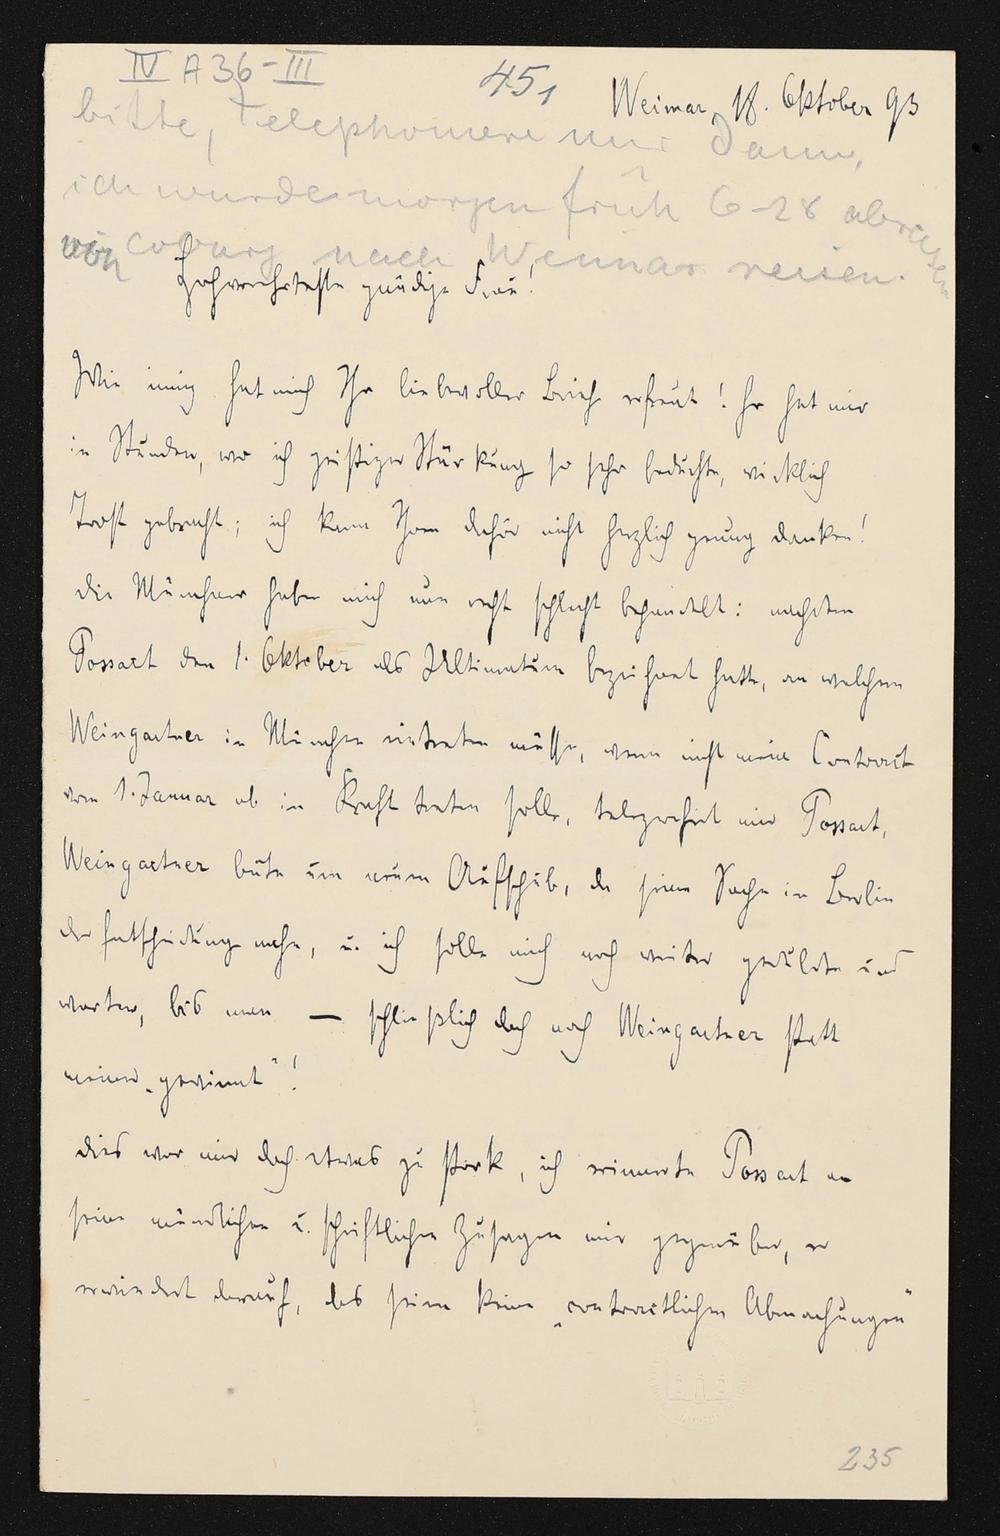 IV A 36-III
45,
Weimar, 18. Oktober 93
bitte, Telephoniere mir dann,
ich wurde morgen früh 6-28 abreisen
von Coburg nach Weimar reisen.
Hochverehrteste gnädige Frau!
Wie innig hat mich Ihr liebevoller Brief erfreut! Er hat mir
in Stunden, wo ich geistiger Stärkung so sehr bedurfte, wirklich
Trost gebracht; ich kann Ihnen dafür nicht herzlich genug danken!
Die Münchner haben mich nun recht schlecht behandelt: nachdem
Possart den 1. Oktober als Ultimatum bezeichnet hatte, an welchem
Weingartner in München eintreten müsse, wenn nicht mein Contract
vom 1. Januar ab in Kraft treten solle, telegrafirt mir Possart,
Weingartner bäte um neuen Aufschub, da seine Sache in Berlin
der Entscheidung nahe, u. ich solle mich noch weiter gedulden und
warten, bis man — schließlich doch noch Weingartner statt
meiner „gewinnt"!
Dies war mir doch etwas zu stark, ich erinnerte Possart an
seine mündlichen u. schriftlichen Zusagen mir gegenüber, er
erwidert darauf, das seien keine „contractlichen Abmachungen"
235